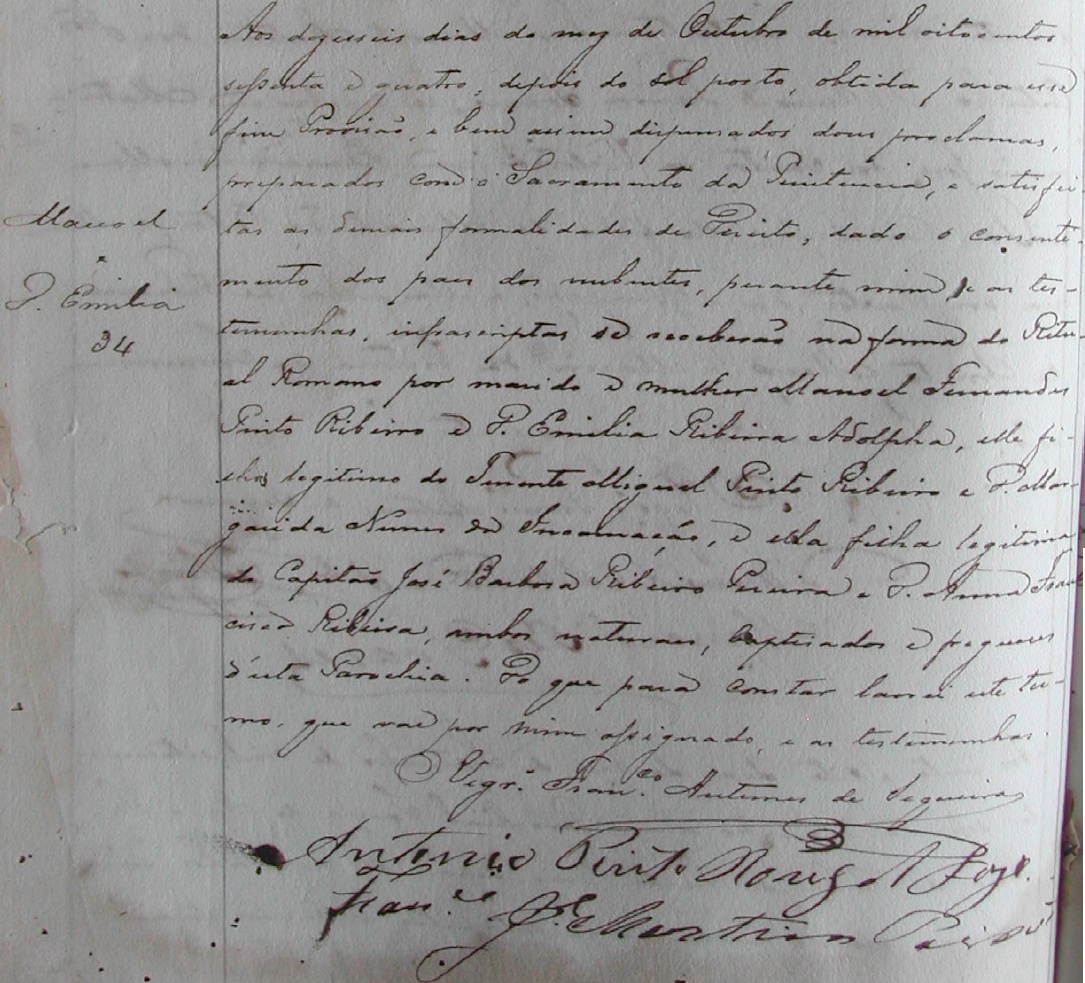 Aos dezeseis dias do mez de Outubro de mil oitocentos
sessenta e quatro, depois do sol posto, obtida para esse
fim Provisão, e bem assim dispensados dous proclamas,
preparados com o Sacramento da Penitencia, e satisfei-
tas as demais formalidades de Direito, dado o consenti-
mento dos paes dos nubentes, perante mim e as tes-
temunhas, infrascriptas se receberão na forma do Ritu-
al Romano por marido e mulher Manoel Fernandes
Pinto Ribeiro e D. Emilia Ribeira Adolpha, elle fi-
lho legitimo do Tenente Miguel Pinto Ribeiro e D. Mar-
garida Nunes da Incarnação, e ella filha legitima
do Capitão José Barbosa Ribeiro Pereira e D. Anna Fran
cisca Ribeira, ambos naturaes, baptisados e freguezes
d'esta Parochia. Do que para constar lavrei este ter-
mo, que vae por mim assignado, e as testemunhas.
Manoel
e
D. Emilia
34
Vigr.º Fran.co Antunes de Sequeira
Antonio Pinto
Fran.co Je Martins